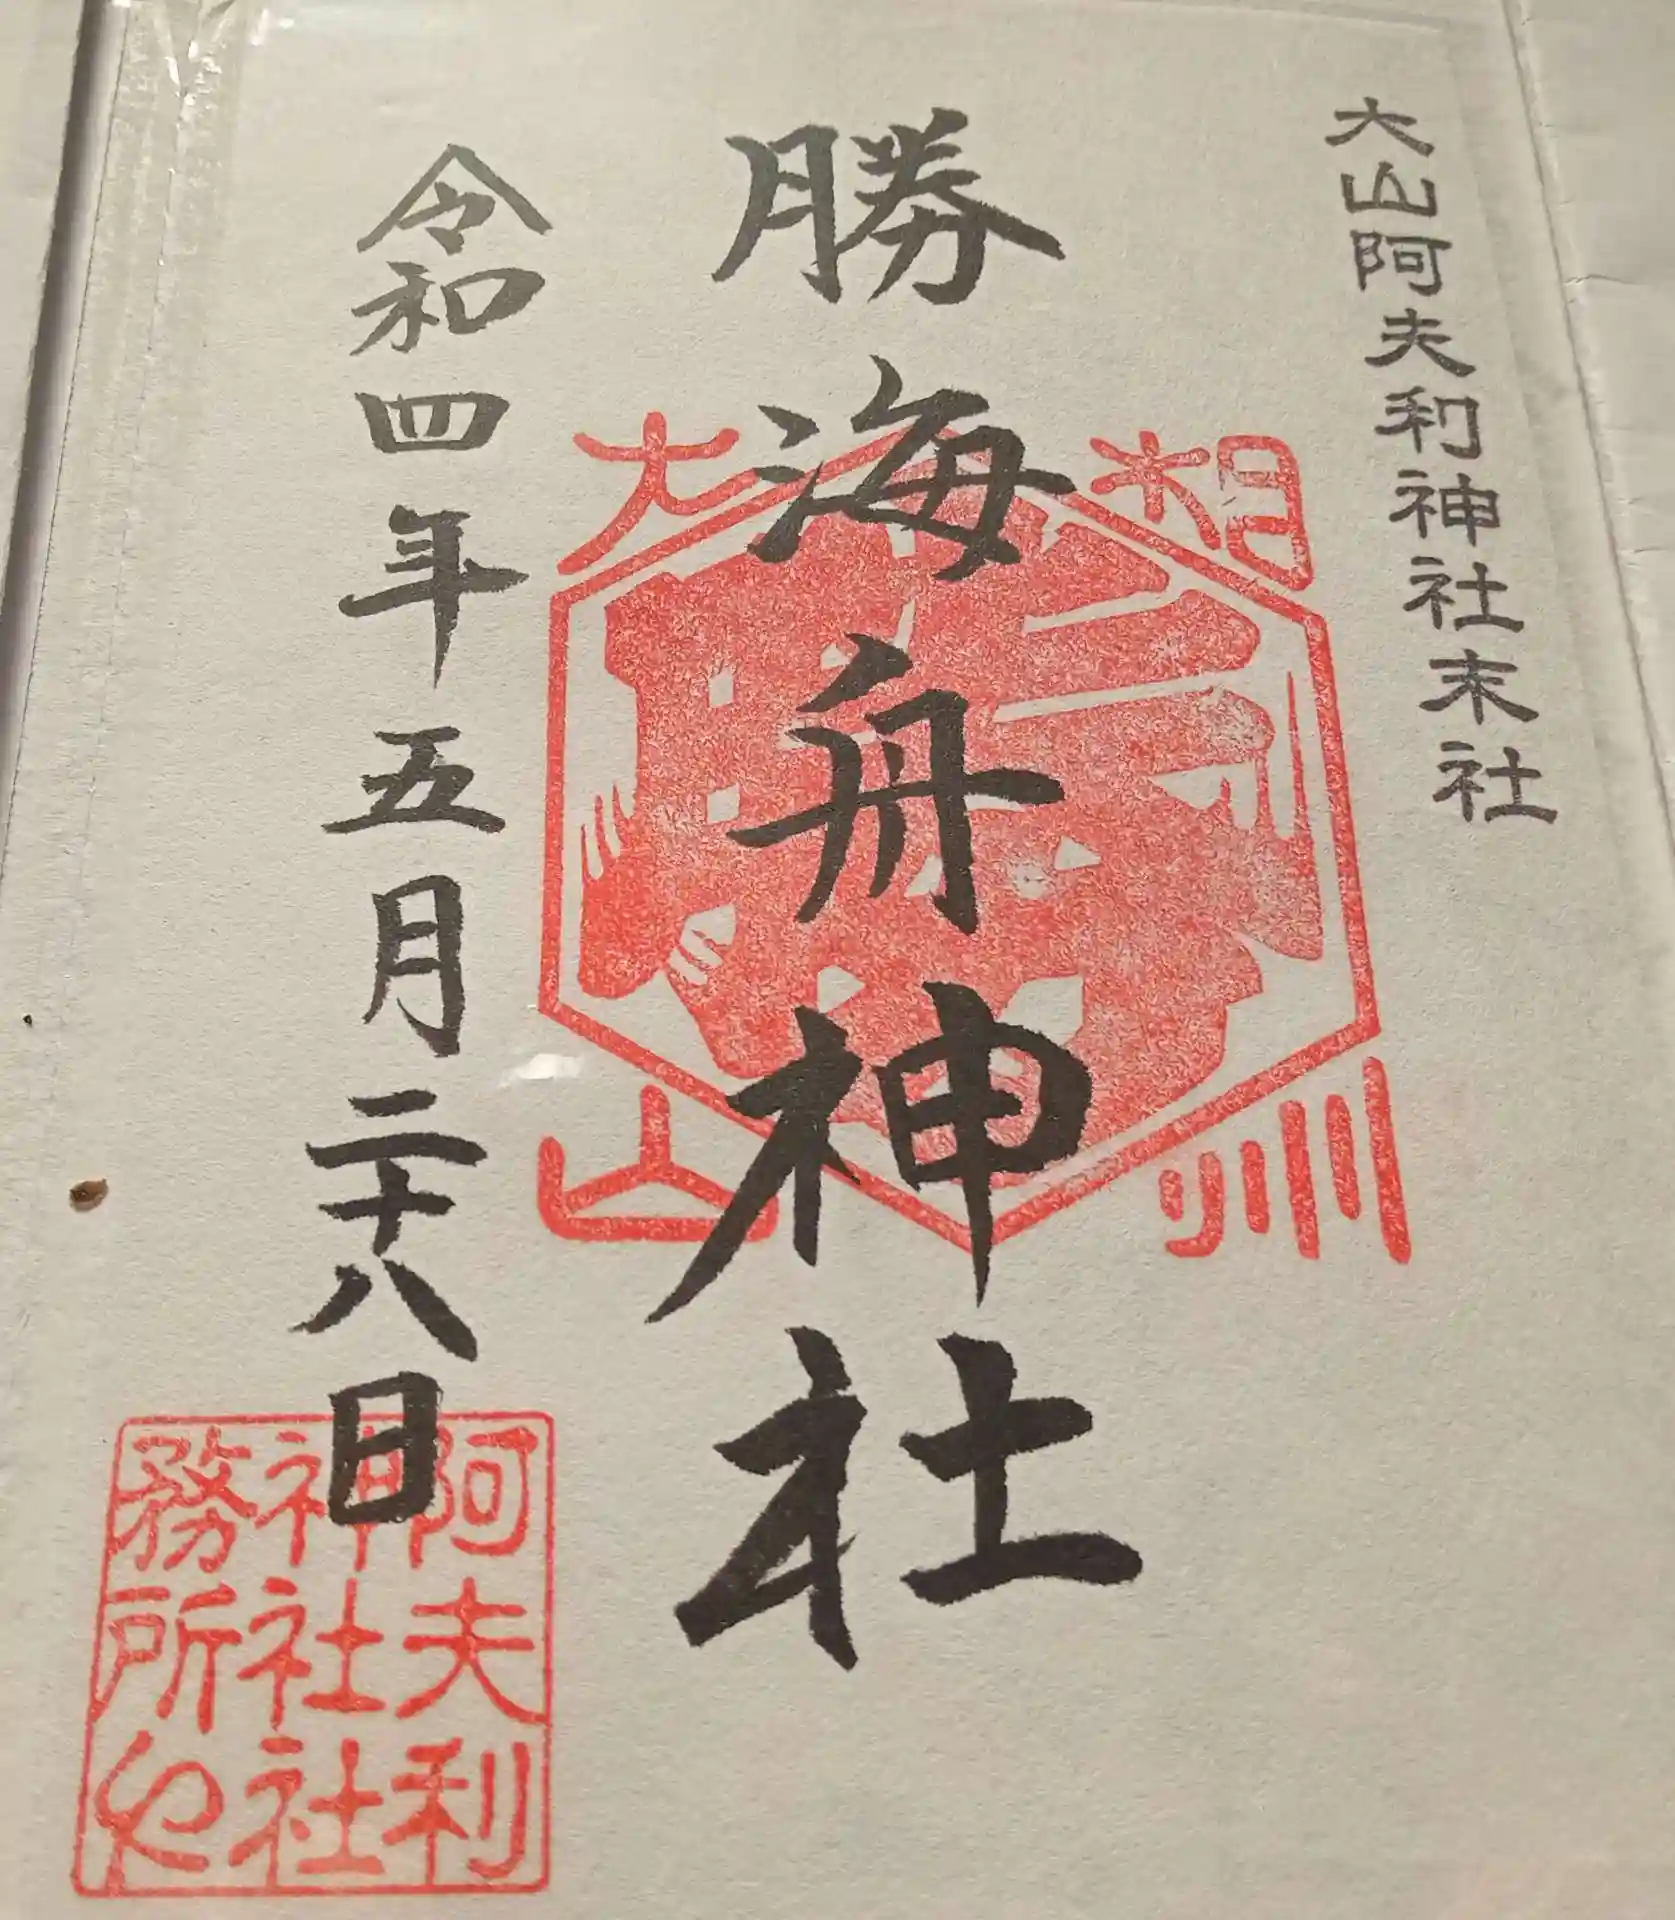 大山阿夫利神社末社
相州
大山
勝海舟神社
令和四年五月二十八日
阿夫利
神社社
務所也